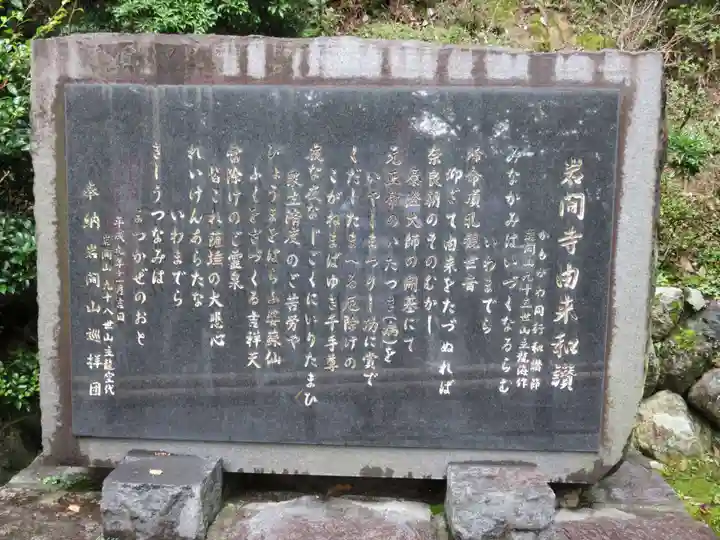 岩間寺由来和讃
かもがわ同行和讃節
岩間山九十五世山主龍海作
みなかみはいづくなるらむ
いわまでら
帰命頂礼観世音
仰ぎて由来をたづぬれば
奈良朝のそのむかし
泰澄大師の開基にて
元正帝のいたつき(病)を
いやしまつりし功に賞で
くだしたまへる厄除けの
こがねまばゆき千手尊
夜な夜なじごくにいりたまひ
衆生済度のご苦労や
ひょうまをはらふ婆蘇仙
ふくをさづくる吉祥天
雷除けのご霊泉
皆これ薩埵の大悲心
れいけんあらたな
いわまでら
きしうつなみは
まつかぜのおと
平成九年十一月吉日
岩間山九十八世山主龍空代
奉納 岩間山巡拝団